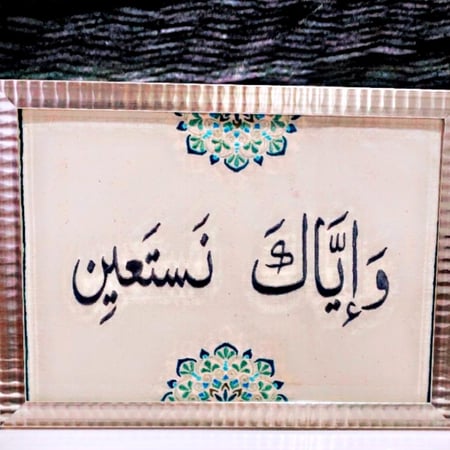 وَإِيَّاكَ نَستَعَينِ